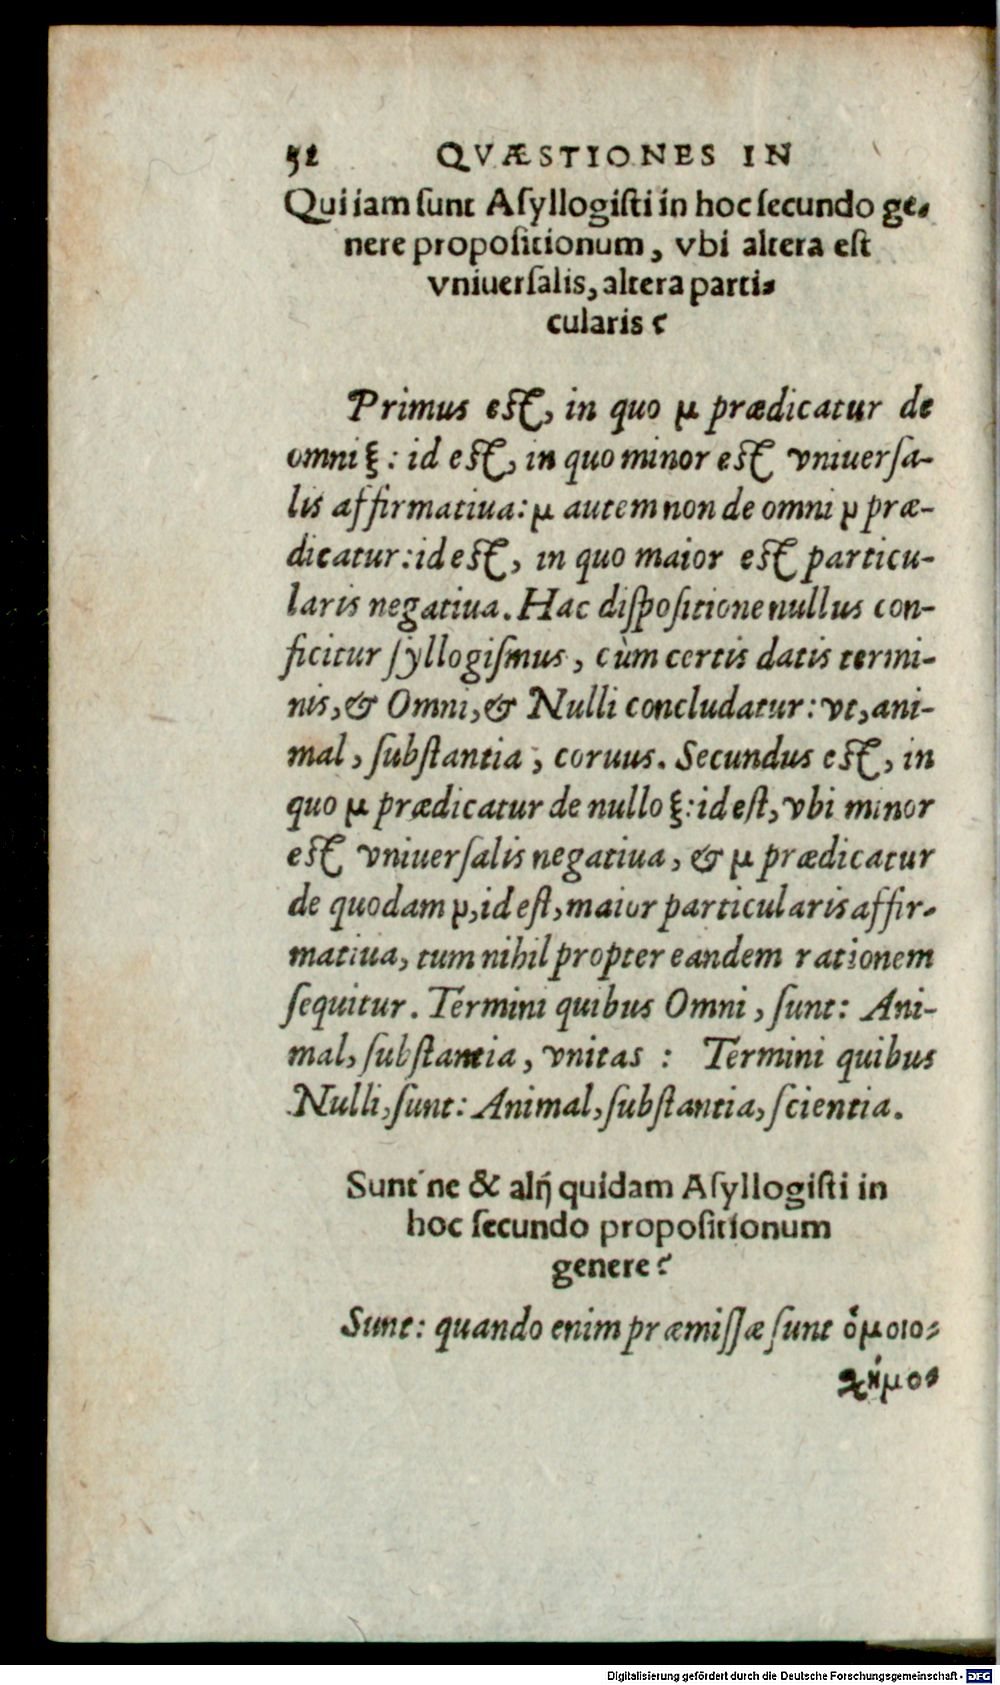 52 QVÆSTIONES IN
Qui iam sunt Asyllogisti in hoc secundo ge-
nere propositionum, vbi altera est
vniuersalis, altera parti-
cularis?
Primus est, in quo μ prædicatur de
omni ξ: id est, in quo minor est vniuersa-
lis affirmatiua: μ autem non de omni ν præ-
dicatur: id est, in quo maior est particu-
laris negatiua. Hac dispositione nullus con-
ficitur syllogismus, cùm certis datis termi-
nis, & Omni, & Nulli concludatur: vt, ani-
mal, substantia, coruus. Secundus est, in
quo μ prædicatur de nullo ξ: id est, vbi minor
est vniuersalis negatiua, & μ prædicatur
de quodam ν, id est, maior particularis affir-
matiua, tum nihil propter eandem rationem
sequitur. Termini quibus Omni, sunt: Ani-
mal, substantia, vnitas: Termini quibus
Nulli, sunt: Animal, substantia, scientia.
Sunt ne & alij quidam Asyllogisti in
hoc secundo propositionum
genere?
Sunt: quando enim præmissæ sunt ὁμοιο-
χήμο-
Digitalisierung gefördert durch die Deutsche Forschungsgemeinschaft - DFG